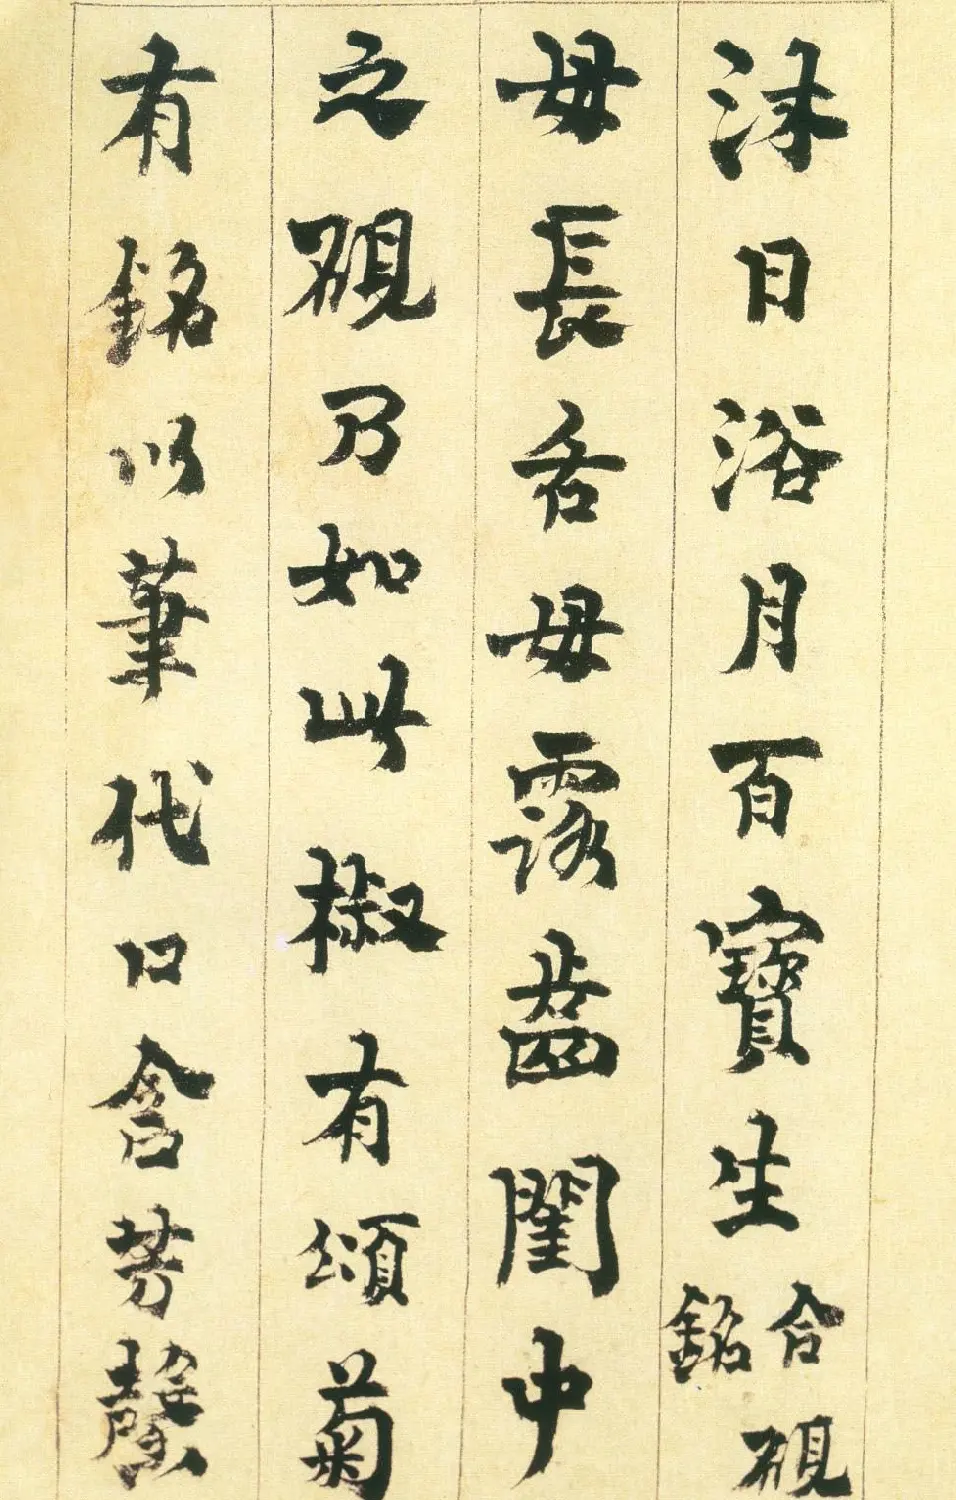 沐日浴月百寶生 合硯銘
毋長舌毋露齒閨中
之硯乃如此椒有頌菊
有銘以筆代口含芳馨